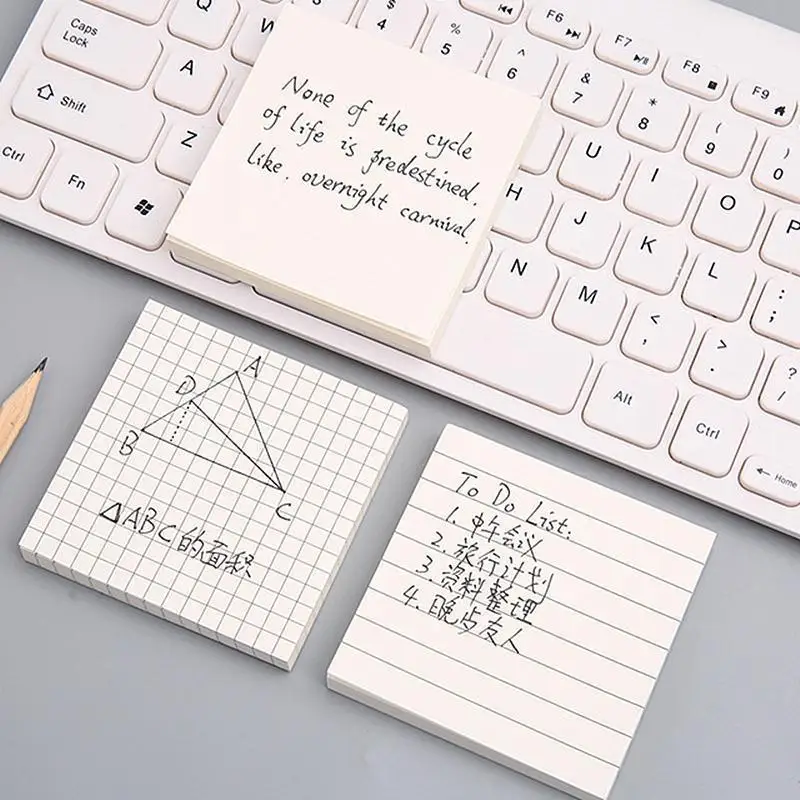 Caps
Lock
Q
$
4
%
5
^
6
F6
F7
F8
F9
A
&
7
*
8
(
9
)
0
Shift
Z
U
I
O
P
Ctrl
Fn
H
J
K
L
:
;
N
M
<
,
>
.
?
/
Alt
Ctrl
Home
None of the cycle
of life is predestined.
like. overnight carnival.
A
D
B
C
△ABC的面积
To Do List:
1. 中午会议
2. 旅行计划
3. 资料整理
4. 晚 友人